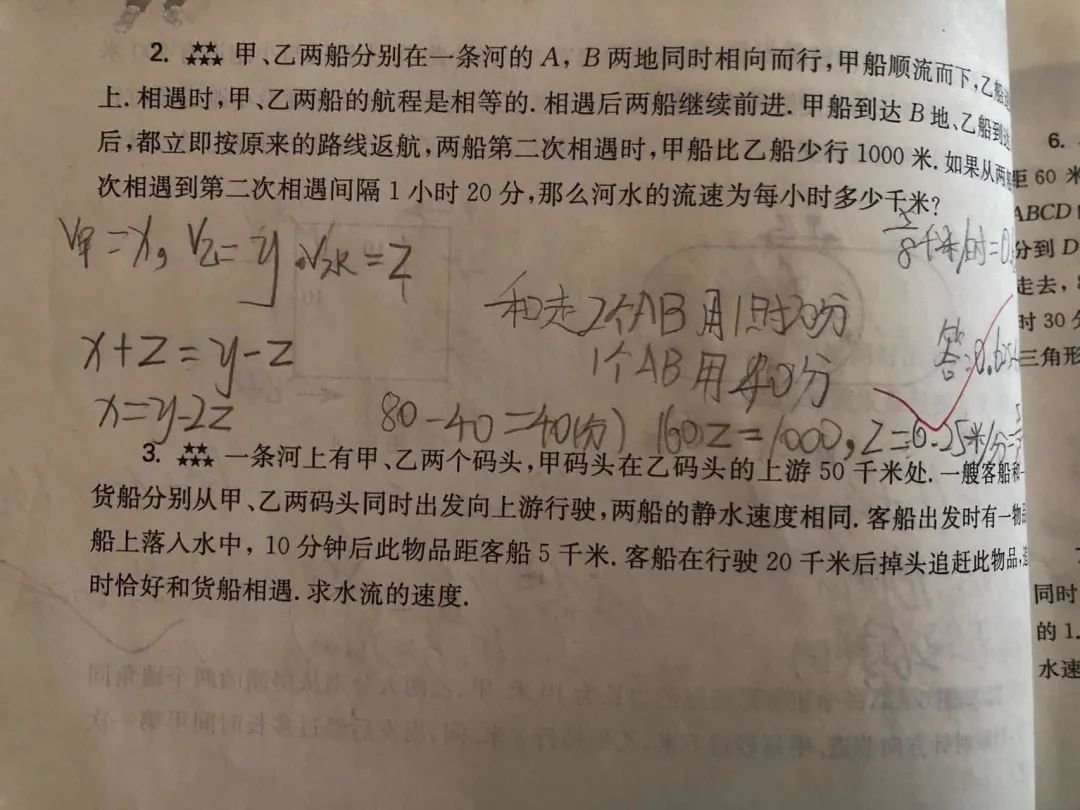 2. ★★★★★ 甲、乙两船分别在一条河的 A，B 两地同时相向而行，甲船顺流而下，乙船
上. 相遇时，甲、乙两船的航程是相等的. 相遇后两船继续前进. 甲船到达 B 地、乙船到达
后，都立即按原来的路线返航，两船第二次相遇时，甲船比乙船少行 1000 米. 如果从两
次相遇到第二次相遇间隔 1 小时 20 分，那么河水的流速为每小时多少千米？
V甲=x，V乙=y，V水=z
5/8千米/时=0.
和走2个AB用1时20分
x+z=y-z
1个AB用40分
答：0.625
x=y-2z
80-40=40(分) 160z=1000，z=6.25米/分=
3. ★★★★★ 一条河上有甲、乙两个码头，甲码头在乙码头的上游 50 千米处. 一艘客船和一
货船分别从甲、乙两码头同时出发向上游行驶，两船的静水速度相同. 客船出发时有一物品
船上落入水中，10 分钟后此物品距客船 5 千米. 客船在行驶 20 千米后掉头追赶此物品，追
时恰好和货船相遇. 求水流的速度.
6.
距 60 米
ABCD
分到 D
走去，
时 30 分
三角形
同时
的 1.
水速